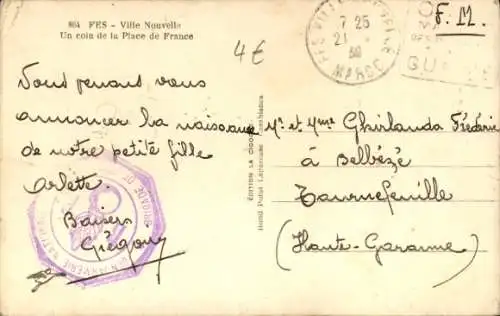 864 FES - Ville Nouvelle
Un coin de la Place de France
4€
F. M.
7 25
21
MAROC
Vous venant vous
annoncer la naissance
de notre petite fille
Arlette.
Baisers
Grégory
BRIGADE DE
GENDARMERIE NATIONALE
EDITION LA CIGOGNE
Mr. et Mme Ghirlanda Frédéric
à Belbèze
Tournefeuille
(Haute-Garonne)